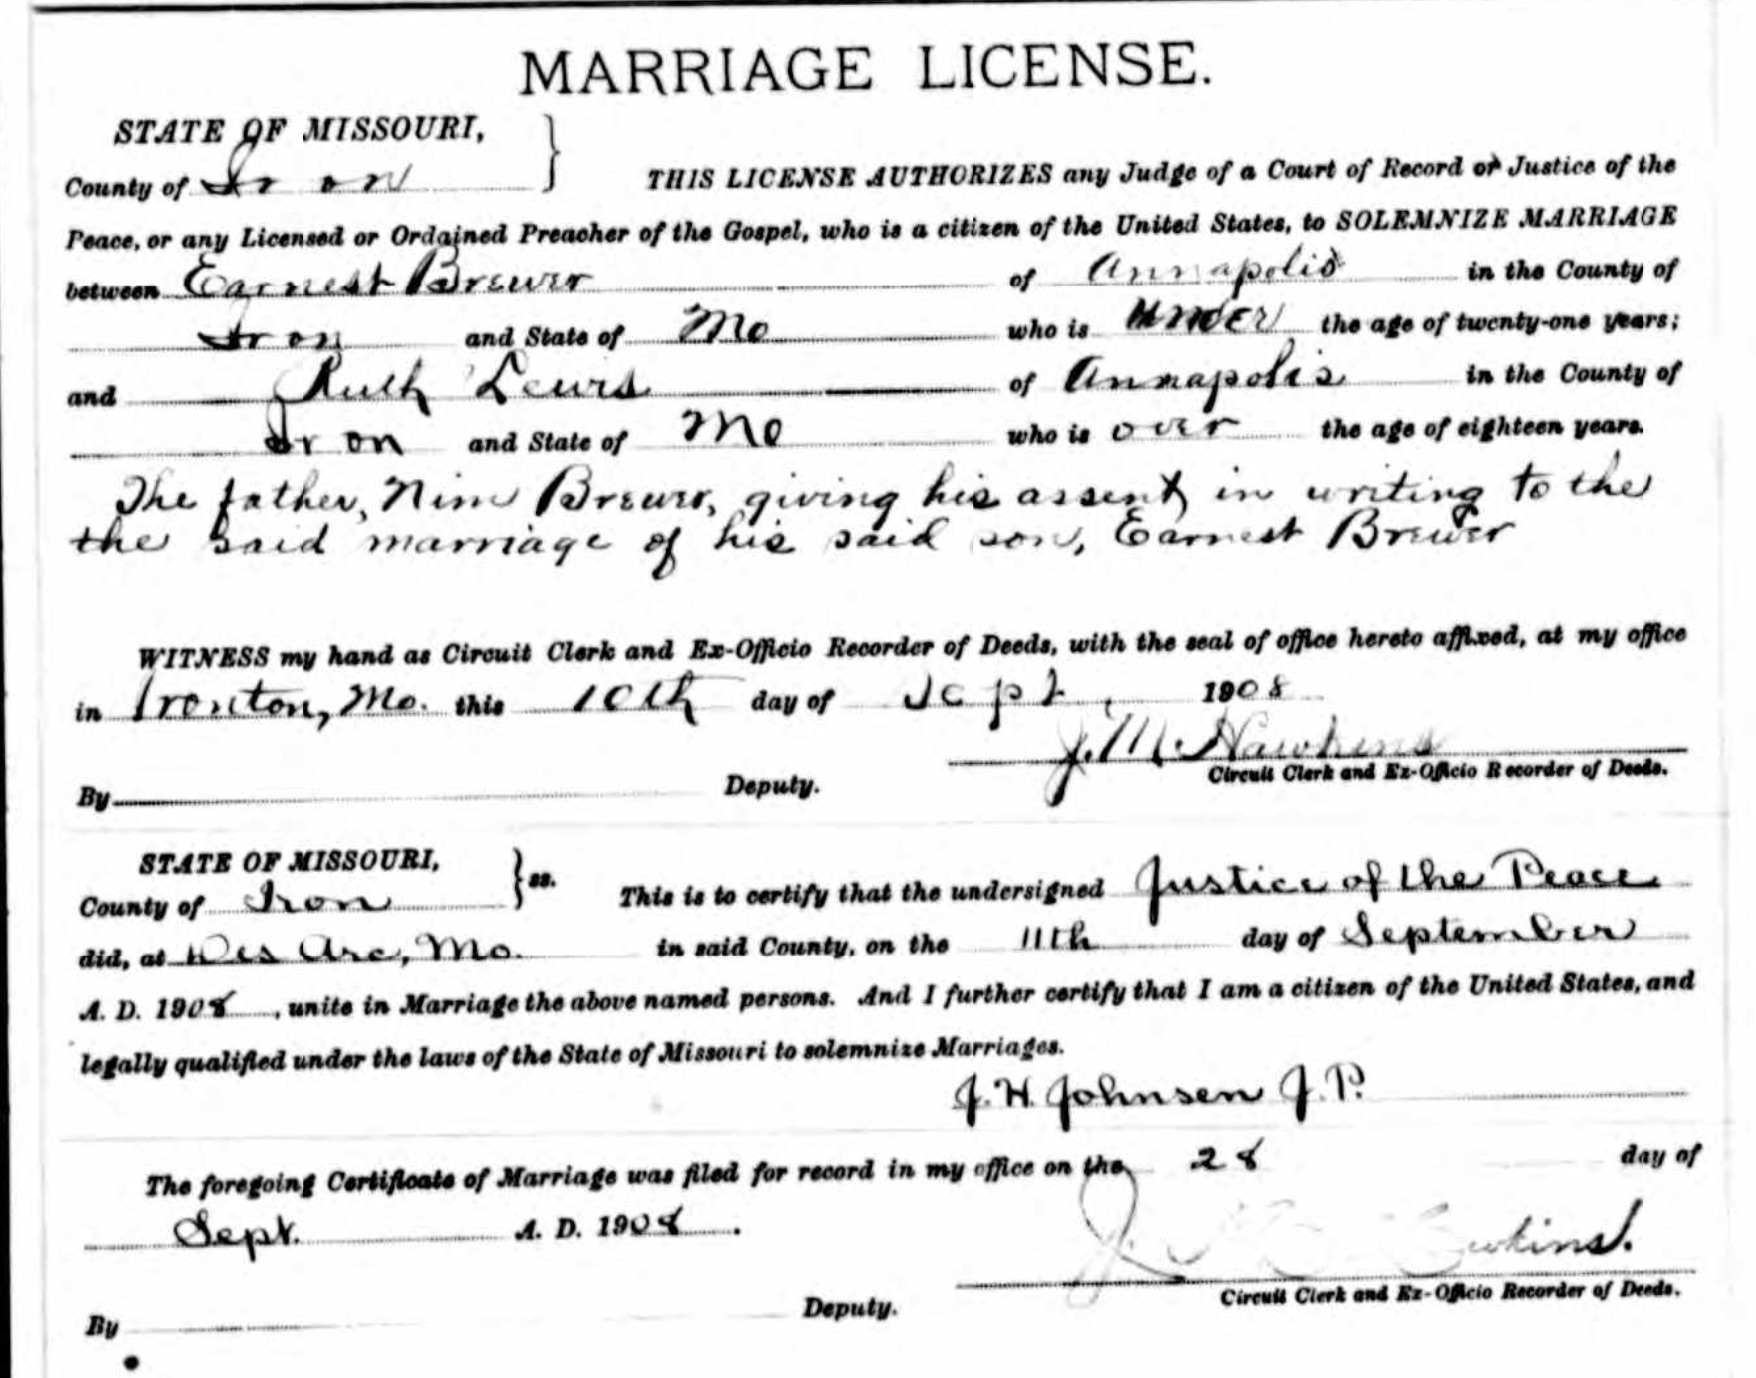 MARRIAGE LICENSE.
STATE OF MISSOURI,
County of Iron } THIS LICENSE AUTHORIZES any Judge of a Court of Record or Justice of the
Peace, or any Licensed or Ordained Preacher of the Gospel, who is a citizen of the United States, to SOLEMNIZE MARRIAGE
between Earnest Brewer of Annapolis in the County of
Iron and State of Mo who is under the age of twenty-one years;
and Ruth Lewis of Annapolis in the County of
Iron and State of Mo who is over the age of eighteen years.
The father, Nim Brewer, giving his assent in writing to the
the said marriage of his said son, Earnest Brewer
WITNESS my hand as Circuit Clerk and Ex-Officio Recorder of Deeds, with the seal of office hereto affixed, at my office
in Ironton, Mo. this 10th day of Sept, 1908
J. M. Hawkins
Circuit Clerk and Ex-Officio Recorder of Deeds.
By Deputy.
STATE OF MISSOURI,
County of Iron } ss. This is to certify that the undersigned Justice of the Peace
did, at Des Arc, Mo. in said County, on the 11th day of September
A. D. 1908, unite in Marriage the above named persons. And I further certify that I am a citizen of the United States, and
legally qualified under the laws of the State of Missouri to solemnize Marriages.
J. H. Johnsen J. P.
The foregoing Certificate of Marriage was filed for record in my office on the 28 day of
Sept. A. D. 1908.
J. wkins.
Circuit Clerk and Ex-Officio Recorder of Deeds.
By Deputy.